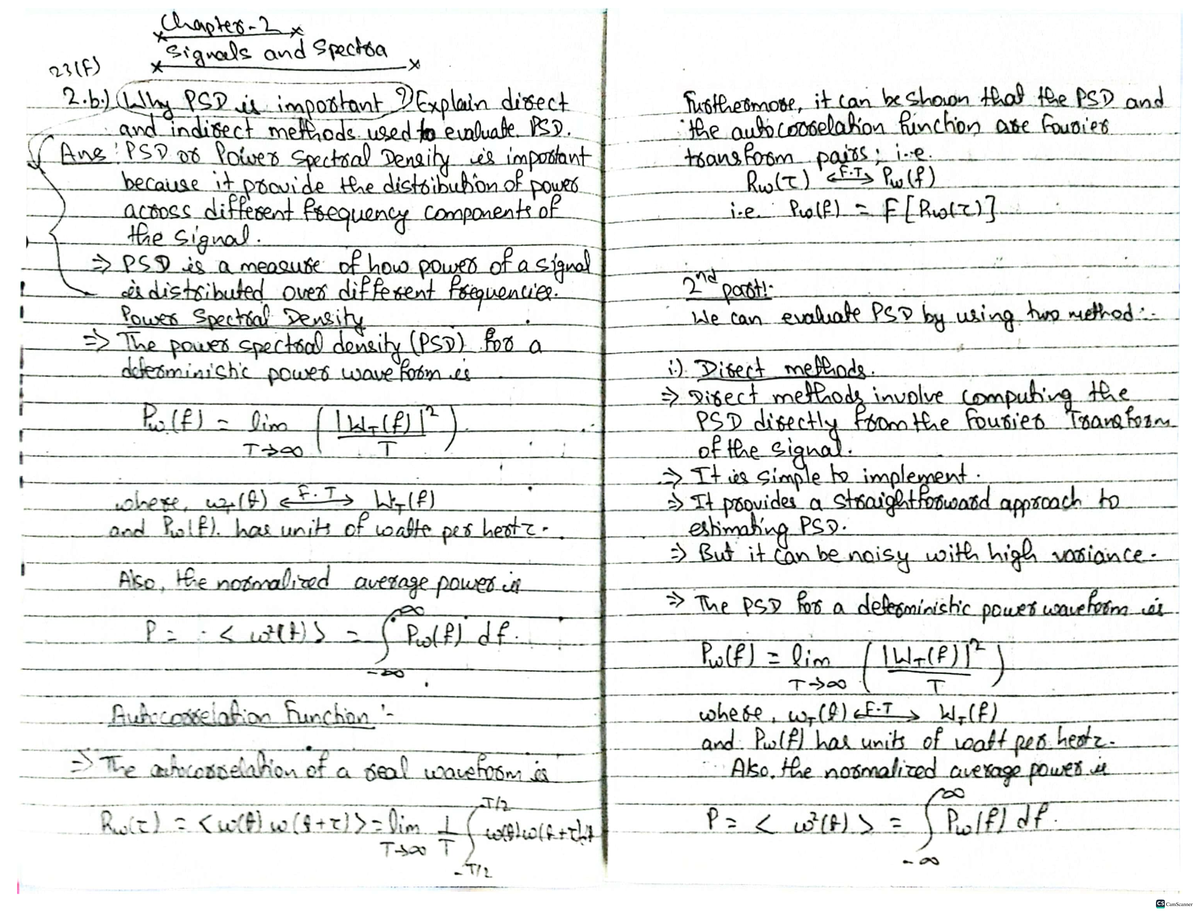 Chapter-2
Signals and Spectra
23(f)
2.b.) Why PSD is important ? Explain direct
and indirect methods used to evaluate PSD.
Ans: PSD or Power Spectral Density is important
because it provide the distribution of power
across different frequency components of
the signal.
⇒ PSD is a measure of how power of a signal
is distributed over different frequencies.
Power Spectral Density
⇒ The power spectral density (PSD) for a
deterministic power waveform is
Pw(f) = lim T→∞ (|W_T(f)|²/T)
where, w_T(t) ←F.T→ W_T(f)
and Pw(f). has units of watts per hertz.
Also, the normalized average power is
P = < w²(t) > = ∫_{-∞}^{∞} Pw(f) df.
Autocorrelation Function :-
⇒ The autocorrelation of a real waveform is
Rw(τ) = <w(t) w(t+τ)> = lim T→∞ 1/T ∫_{-T/2}^{T/2} w(t) w(t+τ) dt
Furthermore, it can be shown that the PSD and
the autocorrelation function are Fourier
transform pairs; i.e.
Rw(τ) ←F.T→ Pw(f)
i.e. Pw(f) = F[Rw(τ)]
2nd part:-
We can evaluate PSD by using two method:-
i.) Direct methods.
⇒ Direct methods involve computing the
PSD directly from the Fourier Transform
of the signal.
⇒ It is simple to implement.
⇒ It provides a straightforward approach to
estimating PSD.
⇒ But it can be noisy with high variance.
⇒ The PSD for a deterministic power waveform is
Pw(f) = lim T→∞ (|W_T(f)|²/T)
where, w_T(t) ←F.T→ W_T(f)
and Pw(f) has units of watt per hertz.
Also, the normalized average power is
P = < w²(t) > = ∫_{-∞}^{∞} Pw(f) df.
CS CamScanner